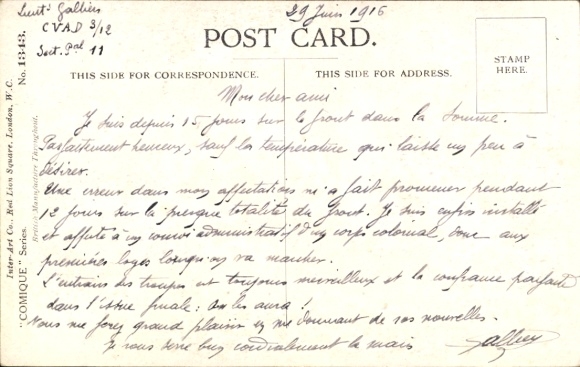 Lieut. Gallien
CVAD 3/12
Sect. Pal 11
29 Juin 1916
POST CARD.
THIS SIDE FOR CORRESPONDENCE.
THIS SIDE FOR ADDRESS.
STAMP
HERE.
Mon cher ami
Je suis depuis 15 jours sur le front dans la Somme.
Parfaitement heureux, sauf la température qui laisse un peu à
désirer.
Une erreur dans mon affectation m'a fait promener pendant
12 jours sur la presque totalité du front. Je suis enfin installé
et affecté à un convoi administratif d'un corps colonial, donc aux
premières loges lorsqu'on va marcher.
L'entrain des troupes est toujours merveilleux et la confiance parfaite
dans l'issue finale : on les aura !
Vous me ferez grand plaisir en me donnant de vos nouvelles.
Je vous serre bien cordialement la main
Inter-Art Co., Red Lion Square, London, W.C.
British Manufacture Throughout.
"COMIQUE" Series.
No. 1343.